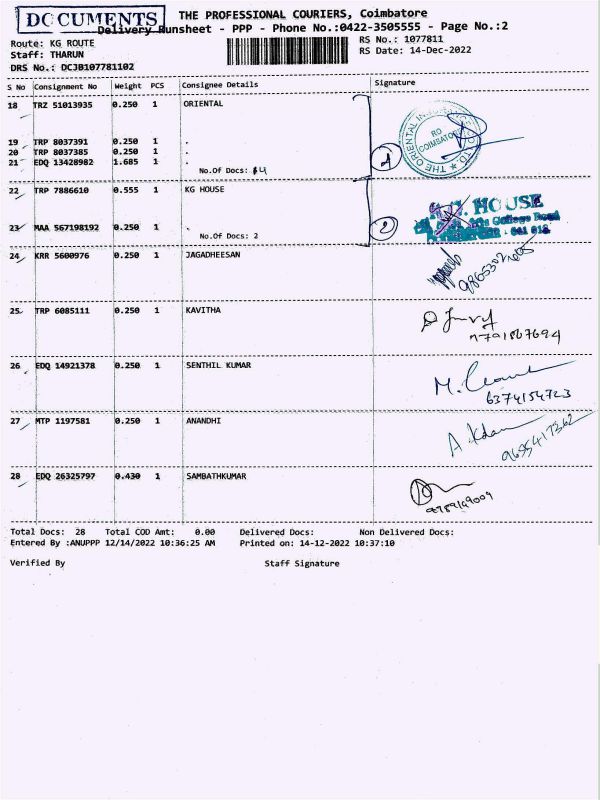 DOCUMENTS
THE PROFESSIONAL COURIERS, Coimbatore
Delivery Runsheet - PPP - Phone No.:0422-3505555 - Page No.:2
Route: KG ROUTE
RS No.: 1077811
Staff: THARUN
RS Date: 14-Dec-2022
DRS No.: DCJB107781102
S No Consignment No Weight PCS Consignee Details Signature
18 TRZ 51013935 0.250 1 ORIENTAL
19 TRP 8037391 0.250 1 .
20 TRP 8037385 0.250 1 .
21 EDQ 13428982 1.685 1 .
No.Of Docs: 4
1
RO
COIMBATORE
THE ORIENTAL
22 TRP 7886610 0.555 1 KG HOUSE
23 MAA 567198192 0.250 1 .
No.Of Docs: 2
2
HOUSE
College Road
641 018
24 KRR 5600976 0.250 1 JAGADHEESAN
25 TRP 6085111 0.250 1 KAVITHA
26 EDQ 14921378 0.250 1 SENTHIL KUMAR
6374154723
27 MTP 1197581 0.250 1 ANANDHI
9655417362
28 EDQ 26325797 0.430 1 SAMBATHKUMAR
Total Docs: 28 Total COD Amt: 0.00 Delivered Docs: Non Delivered Docs:
Entered By :ANUPPP 12/14/2022 10:36:25 AM Printed on: 14-12-2022 10:37:10
Verified By Staff Signature